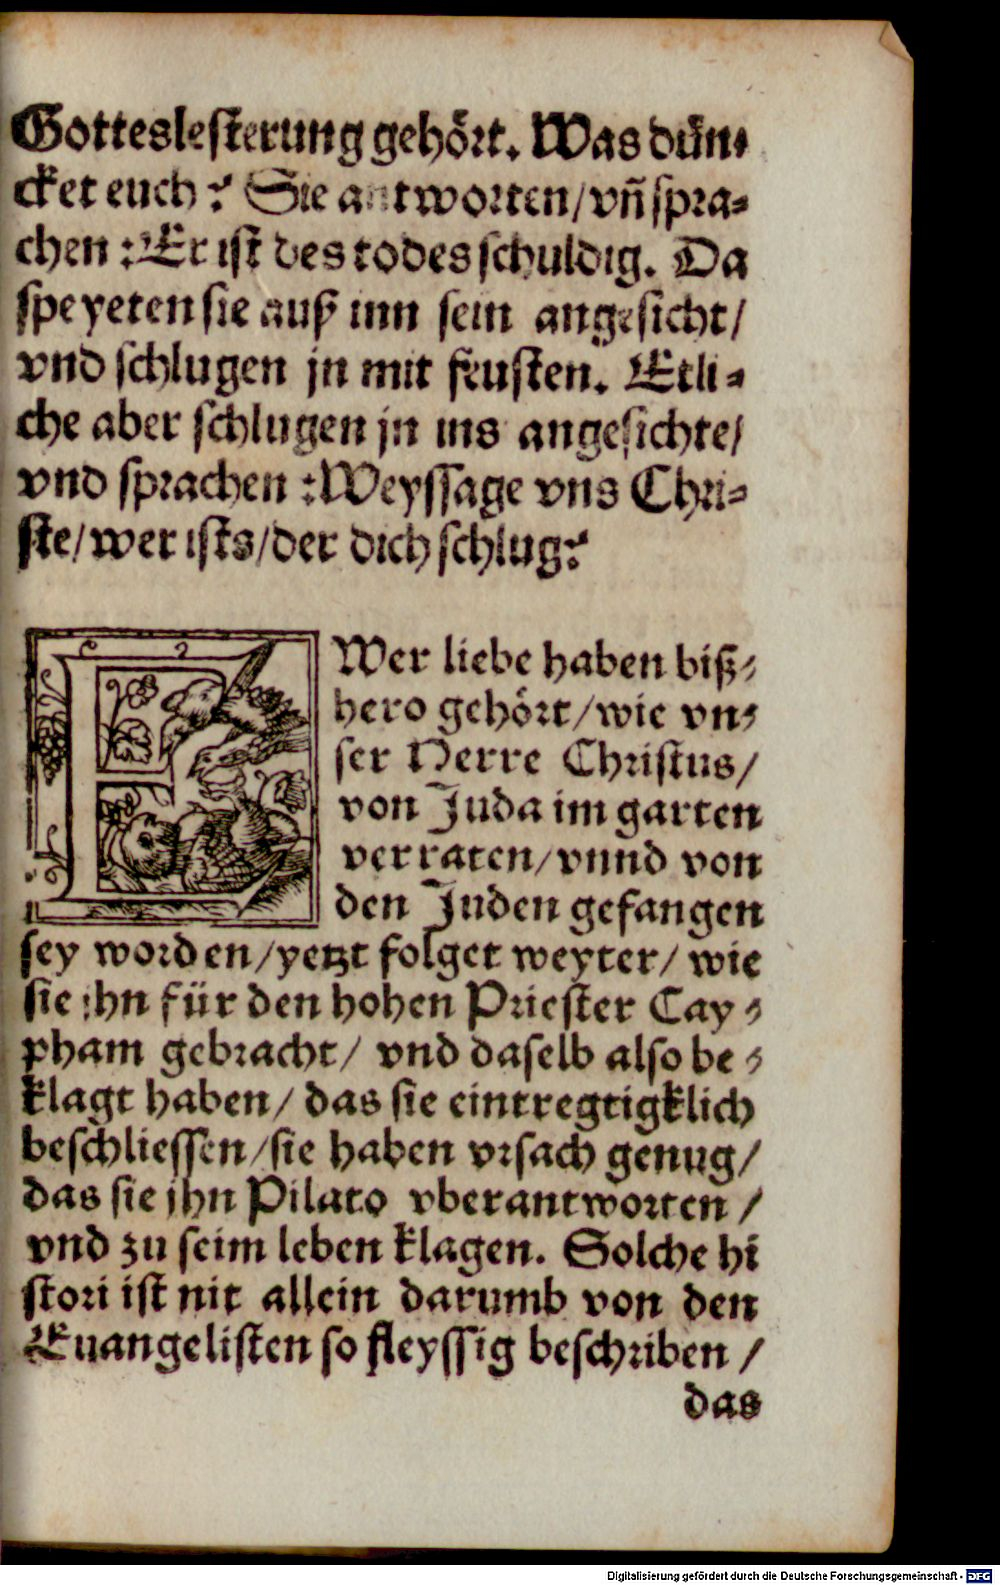 Gotteslesterung gehört. Was dün⸗
cket euch? Sie antworten/ vñ spra⸗
chen: Er ist des todes schuldig. Da
speyeten sie auß inn sein angesicht/
vnd schlugen jn mit feusten. Etli⸗
che aber schlugen jn ins angesichte/
vnd sprachen: Weyssage vns Chri⸗
ste/ wer ists/ der dich schlug?
EWer liebe haben biß⸗
hero gehört/ wie vn⸗
ser Herre Christus/
von Juda im garten
verraten/ vnnd von
den Juden gefangen
sey worden/ yetzt folget weyter/ wie
sie ihn für den hohen Priester Cay⸗
pham gebracht/ vnd daselb also be⸗
klagt haben/ das sie eintregtigklich
beschliessen/ sie haben vrsach genug/
das sie jhn Pilato vberantworten/
vnd zu seim leben klagen. Solche hi
stori ist nit allein darumb von den
Euangelisten so fleyssig beschriben/
das
Digitalisierung gefördert durch die Deutsche Forschungsgemeinschaft - DFG